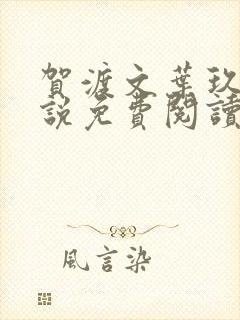 賀渡文葉玖
說免費閱讀
風言染